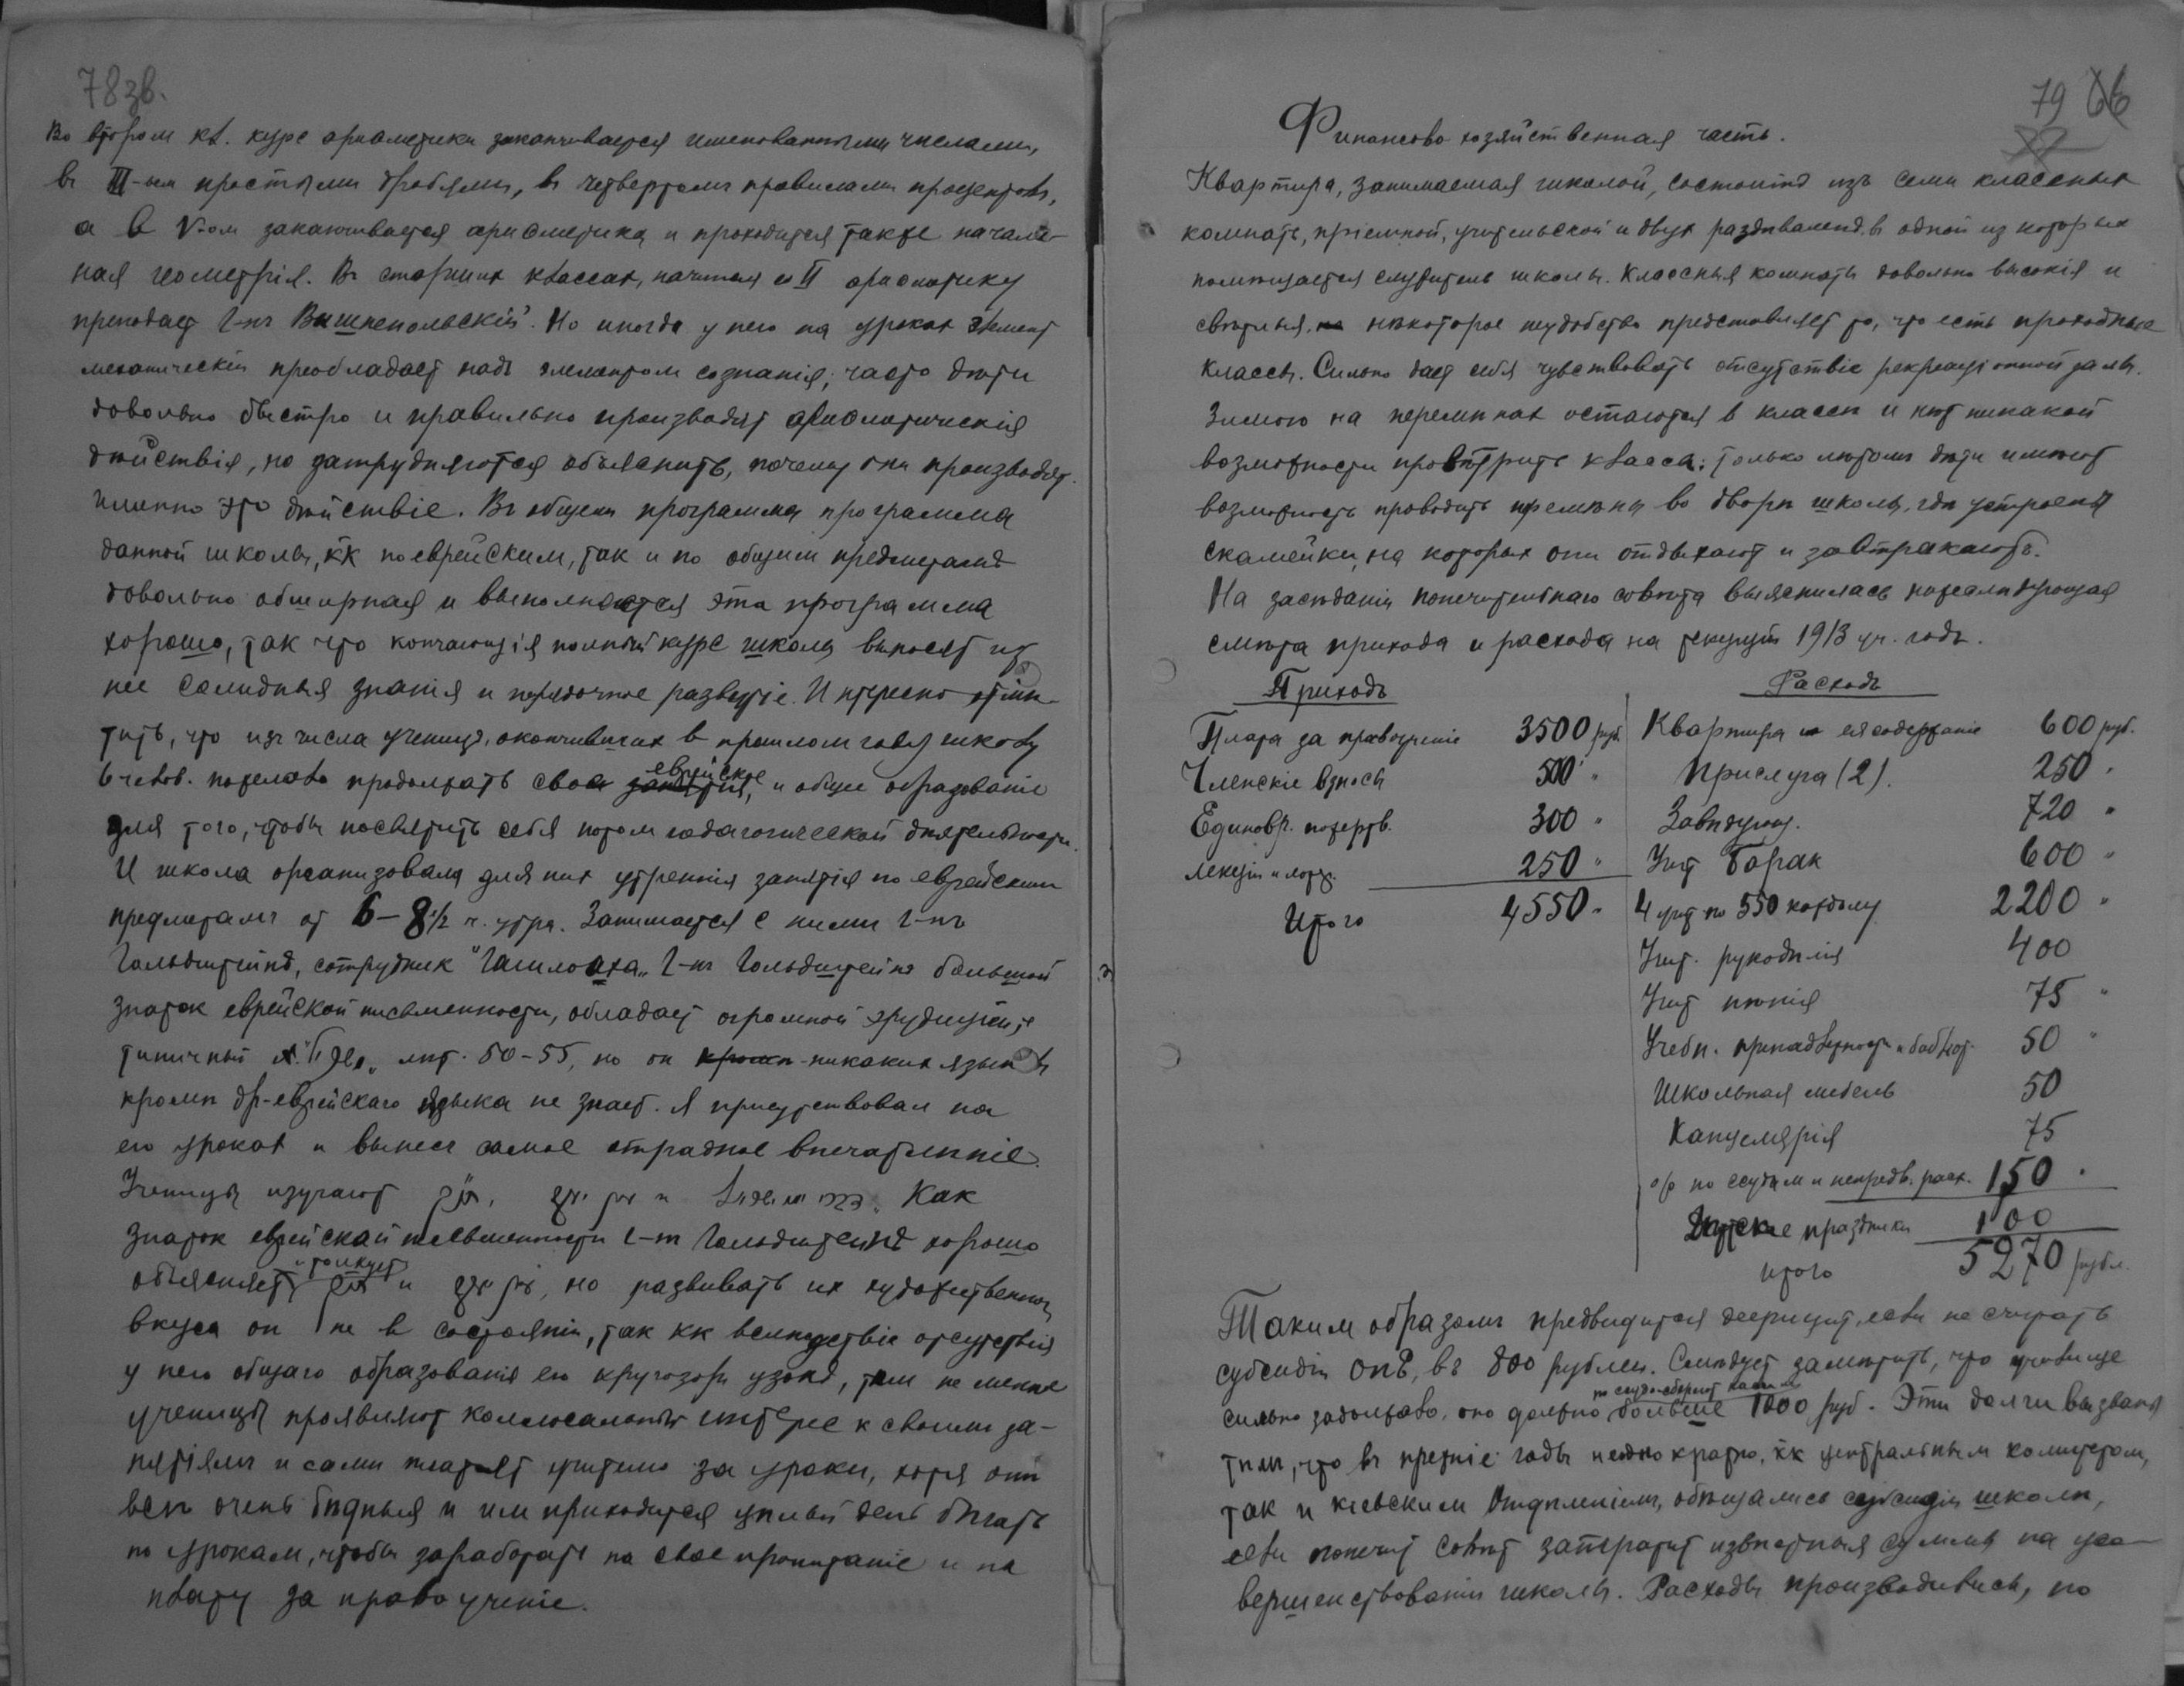 78 зв.
Во втором кл. курс арифметики заканчивается именованными числами,
въ III-ем простыми дробями, въ четвертомъ правилами процентовъ,
а в V-ом заканчивается арифметика и проходится также началь-
ная геометрія. Въ старших классах, начиная со II арифметику
преподает г-нъ Вишнепольскій. Но иногда у него на уроках элемент
механическій преобладает надъ элементом сознанія; часто дѣти
довольно быстро и правильно производят арифметическія
дѣйствія, но затрудняются объяснить, почему они производят
именно это дѣйствіе. Въ общем программа программа
данной школы, кк по еврейским, так и по общим предметамъ
довольно обширная и выполняется эта программа
хорошо, так что кончающія полный курс школы выносят из
нее солидныя знанія и порядочное развитіе. Интересно отмѣ-
тить, что изъ числа учениц, окончивших в прошлом году школу
6 челов. пожелало продолжать свое еврейское и общее образованіе
для того, чтобы посвятить себя потом педагогической дѣятельности.
И школа организовала для них утреннія занятія по еврейским
предметамъ от 6–8 1/2 ч. утра. Занимается с ними г-нъ
Гольдштейнъ, сотрудник "Гашилоаха". Г-нъ Гольдштейнъ большой
знаток еврейской письменности, обладает огромной эрудиціей,
типичный лѣт 50–55, но он кромѣ никаких языков
кромѣ др-еврейскаго языка не знает. Я присутствовал на
его уроках и вынесъ самое отрадное впечатлѣніе.
Ученицы изучают Как
знаток еврейской письменности г-нъ Гольдштейнъ хорошо
объясняет и толкует и но развивать их художественнаго
вкуса он не в состояніи, так кк вслѣдствіе отсутствія
у него общаго образованія его кругозоръ узокъ, тѣм не менѣе
ученицы проявляют колоссальный интерес к своим за-
нятіямъ и сами платят учителю за уроки, хотя они
всѣ очень бѣдныя и им приходится цѣлый день бѣгать
по урокам, чтобы заработать на свое пропитаніе и на
плату за право ученіе.
79 66
Финансово хозяйственная часть.
Квартира, занимаемая школой, состоитъ изъ семи классных
комнатъ, пріемной, учительской и двух раздѣваленъ, в одной из которых
помѣщается служитель школы. Классныя комнаты довольно высокія и
свѣтлыя, но нѣкоторое неудобство представляет то, что есть проходные
классы. Сильно дает себя чувствовать отсутствіе рекреаціонной залы.
Зимою на перемѣнах остаются в классѣ и нѣт никакой
возможности провѣтрить класса; только лѣтомъ дѣти имѣют
возможность проводить перемѣны во дворѣ школы, гдѣ устроены
скамейки, на которых они отдыхают и завтракаютъ.
На засѣданіи попечительнаго совѣта выяснилась нижеслѣдующая
смѣта прихода и расхода на текущій 1913 уч. годъ.
Приходъ
Плата за правоученіе 3500 руб.
Членскіе взносы 500 "
Единовр. пожертв. 300 "
Лекціи и лотер. 250 "
Итого 4550 "
Расходъ
Квартира и ея содержаніе 600 руб.
Прислуга (2). 250 "
Завѣдующ. 720 "
Учит Борак 600 "
4 учит по 550 каждому 2200 "
Учит. рукодѣлія 400
Учит пѣнія 75 "
Учебн. принадлежности и библіот. 50 "
Школьная мебель 50
Канцелярія 75
о/о по ссудам и непредв. расх. 150 "
Дѣтские праздники 100
итого 5270 рубл.
Таким образомъ предвидится дефицит, если не считать
субсидіи ОПЕ, въ 800 рублей. Слѣдует замѣтить, что училище
сильно задолжало, оно должно больше 1000 руб. Эти долги вызваны
тѣмъ, что въ прежніе годы неоднократно, кк центральным комитетом,
так и кіевским Отдѣленіемъ, обѣщались субсидіи школѣ,
если попечит совѣт затратит извѣстныя суммы на усо-
вершенствованіи школы. Расходы производились, но